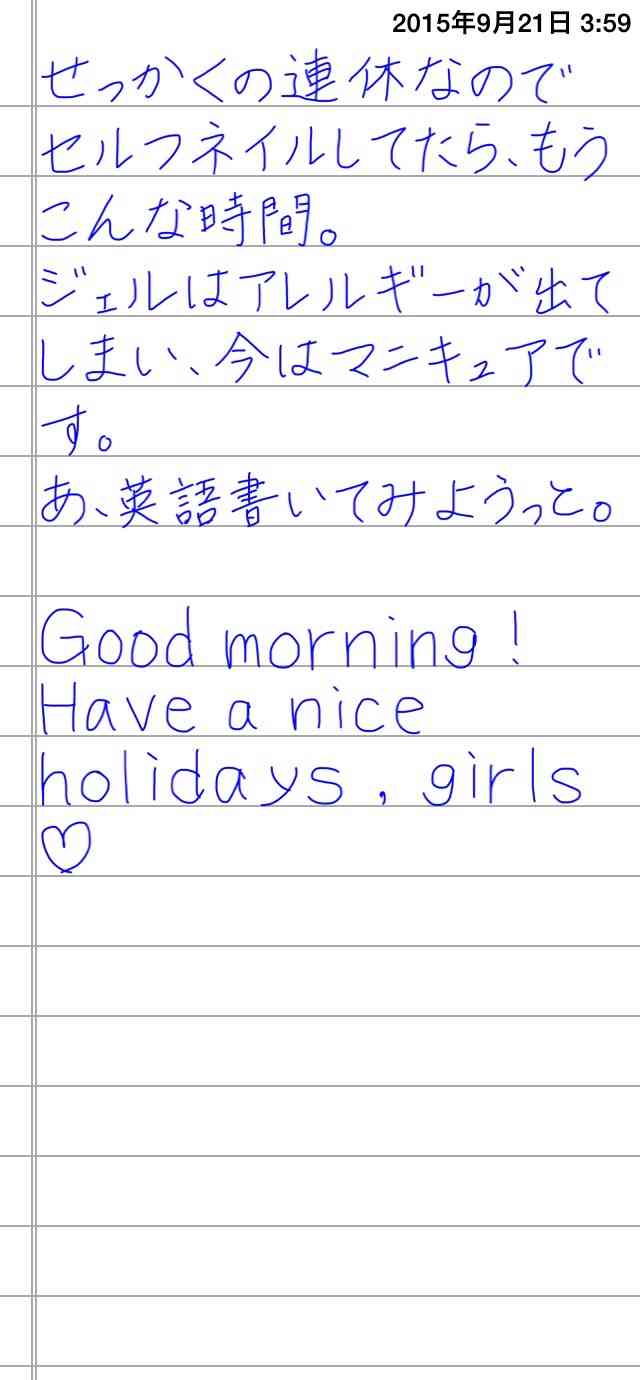 2015年9月21日 3:59
せっかくの連休なので
セルフネイルしてたら、もう
こんな時間。
ジェルはアレルギーが出て
しまい、今はマニキュアで
す。
あ、英語書いてみようっと。
Good morning!
Have a nice
holidays, girls
♡